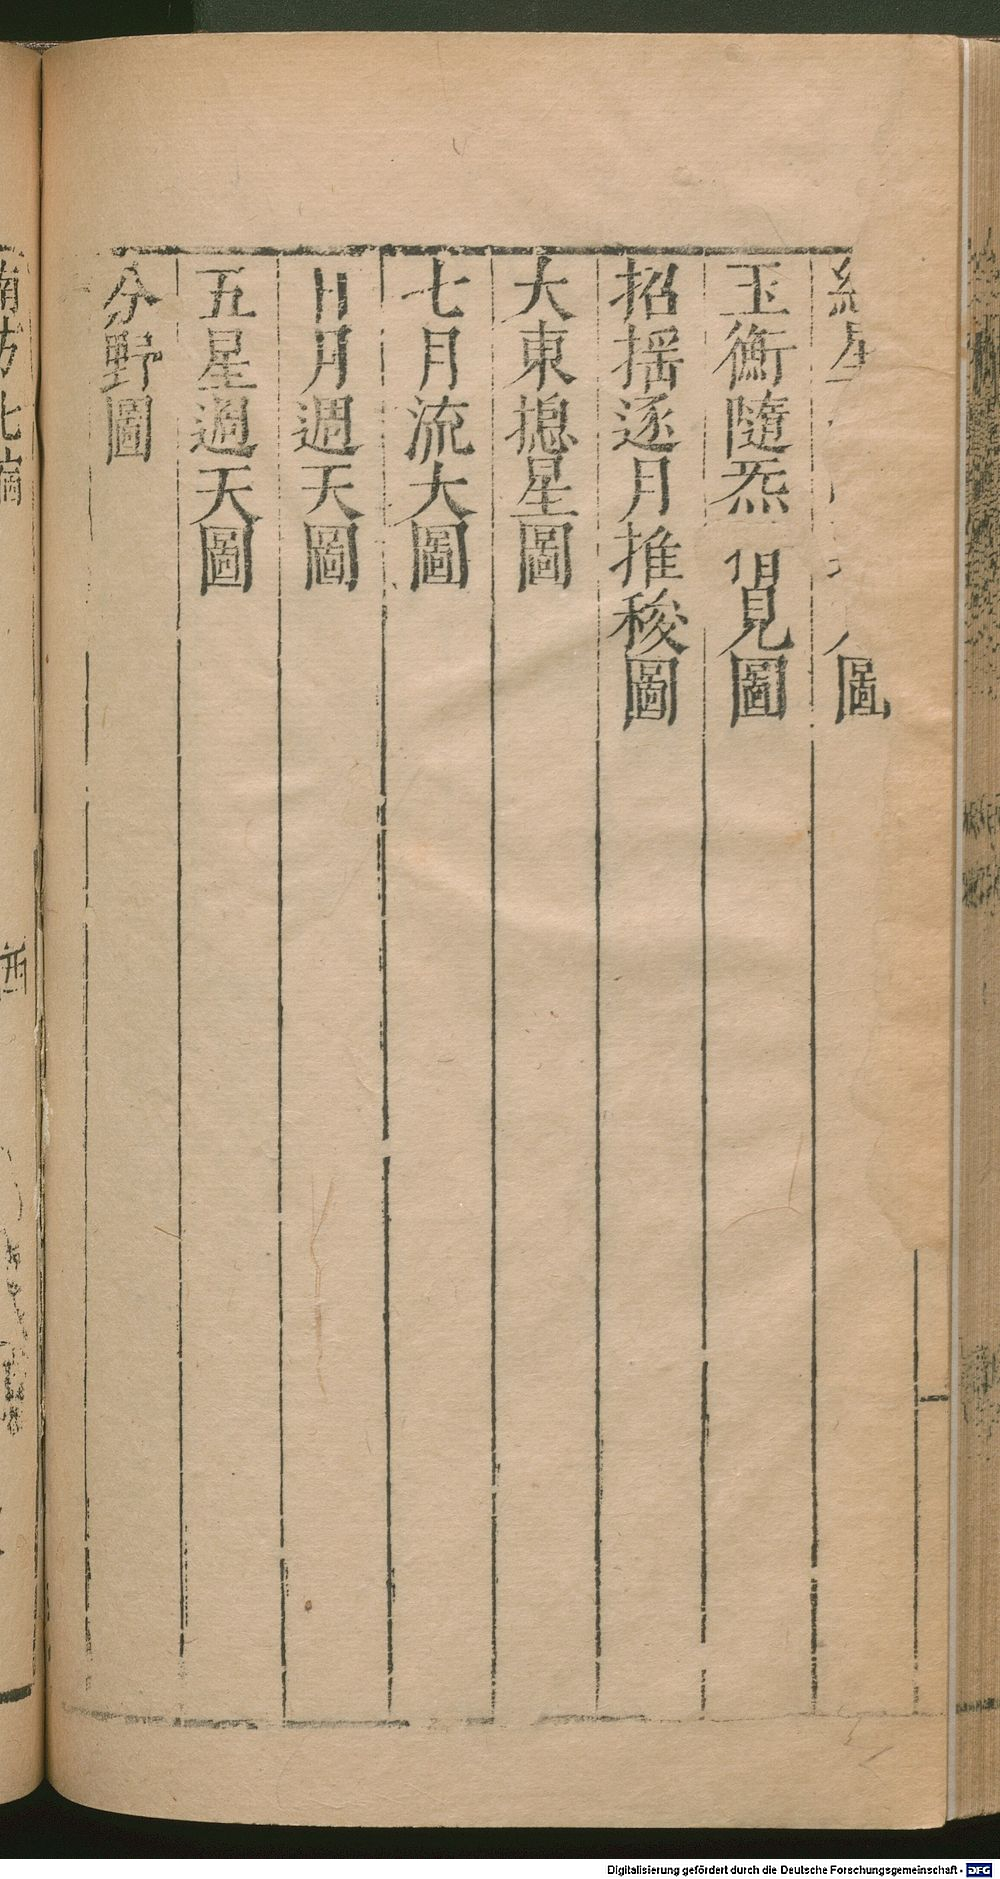 星 圖
玉衡隨炁 見圖
招揺逐月推移圖
大東揔星圖
七月流火圖
日月週天圖
五星週天圖
分野圖
南方七宿
Digitalisierung gefördert durch die Deutsche Forschungsgemeinschaft - DFG